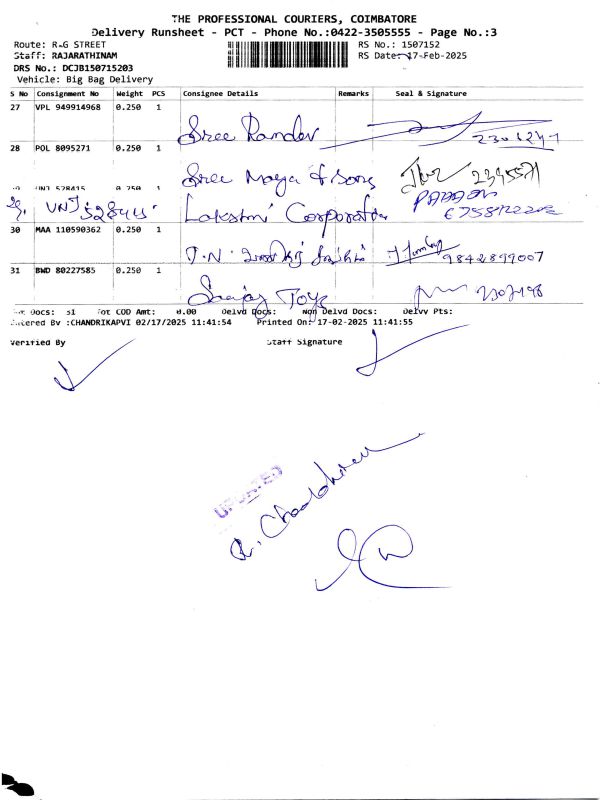 THE PROFESSIONAL COURIERS, COIMBATORE
Delivery Runsheet - PCT - Phone No.:0422-3505555 - Page No.:3
Route: R.G STREET RS No.: 1507152
Staff: RAJARATHINAM RS Date: 17-Feb-2025
DRS No.: DCJB150715203
Vehicle: Big Bag Delivery
S No Consignment No Weight PCS Consignee Details Remarks Seal & Signature
27 VPL 949914968 0.250 1
Sree Ramdev
28 POL 8095271 0.250 1
Sree Maya & Sons
UNJ 528415 0.250 1
29. UNJ 528415 Lakshmi Corporation
30 MAA 110590362 0.250 1
9842899007
31 BWD 80227585 0.250 1
Sanjay Toys
Tot Docs: 31 Tot COD Amt: 0.00 Delvd Docs: Non Delvd Docs: Delvy Pts:
Entered By :CHANDRIKAPVI 02/17/2025 11:41:54 Printed On: 17-02-2025 11:41:55
Verified By Staff Signature
UPDATED